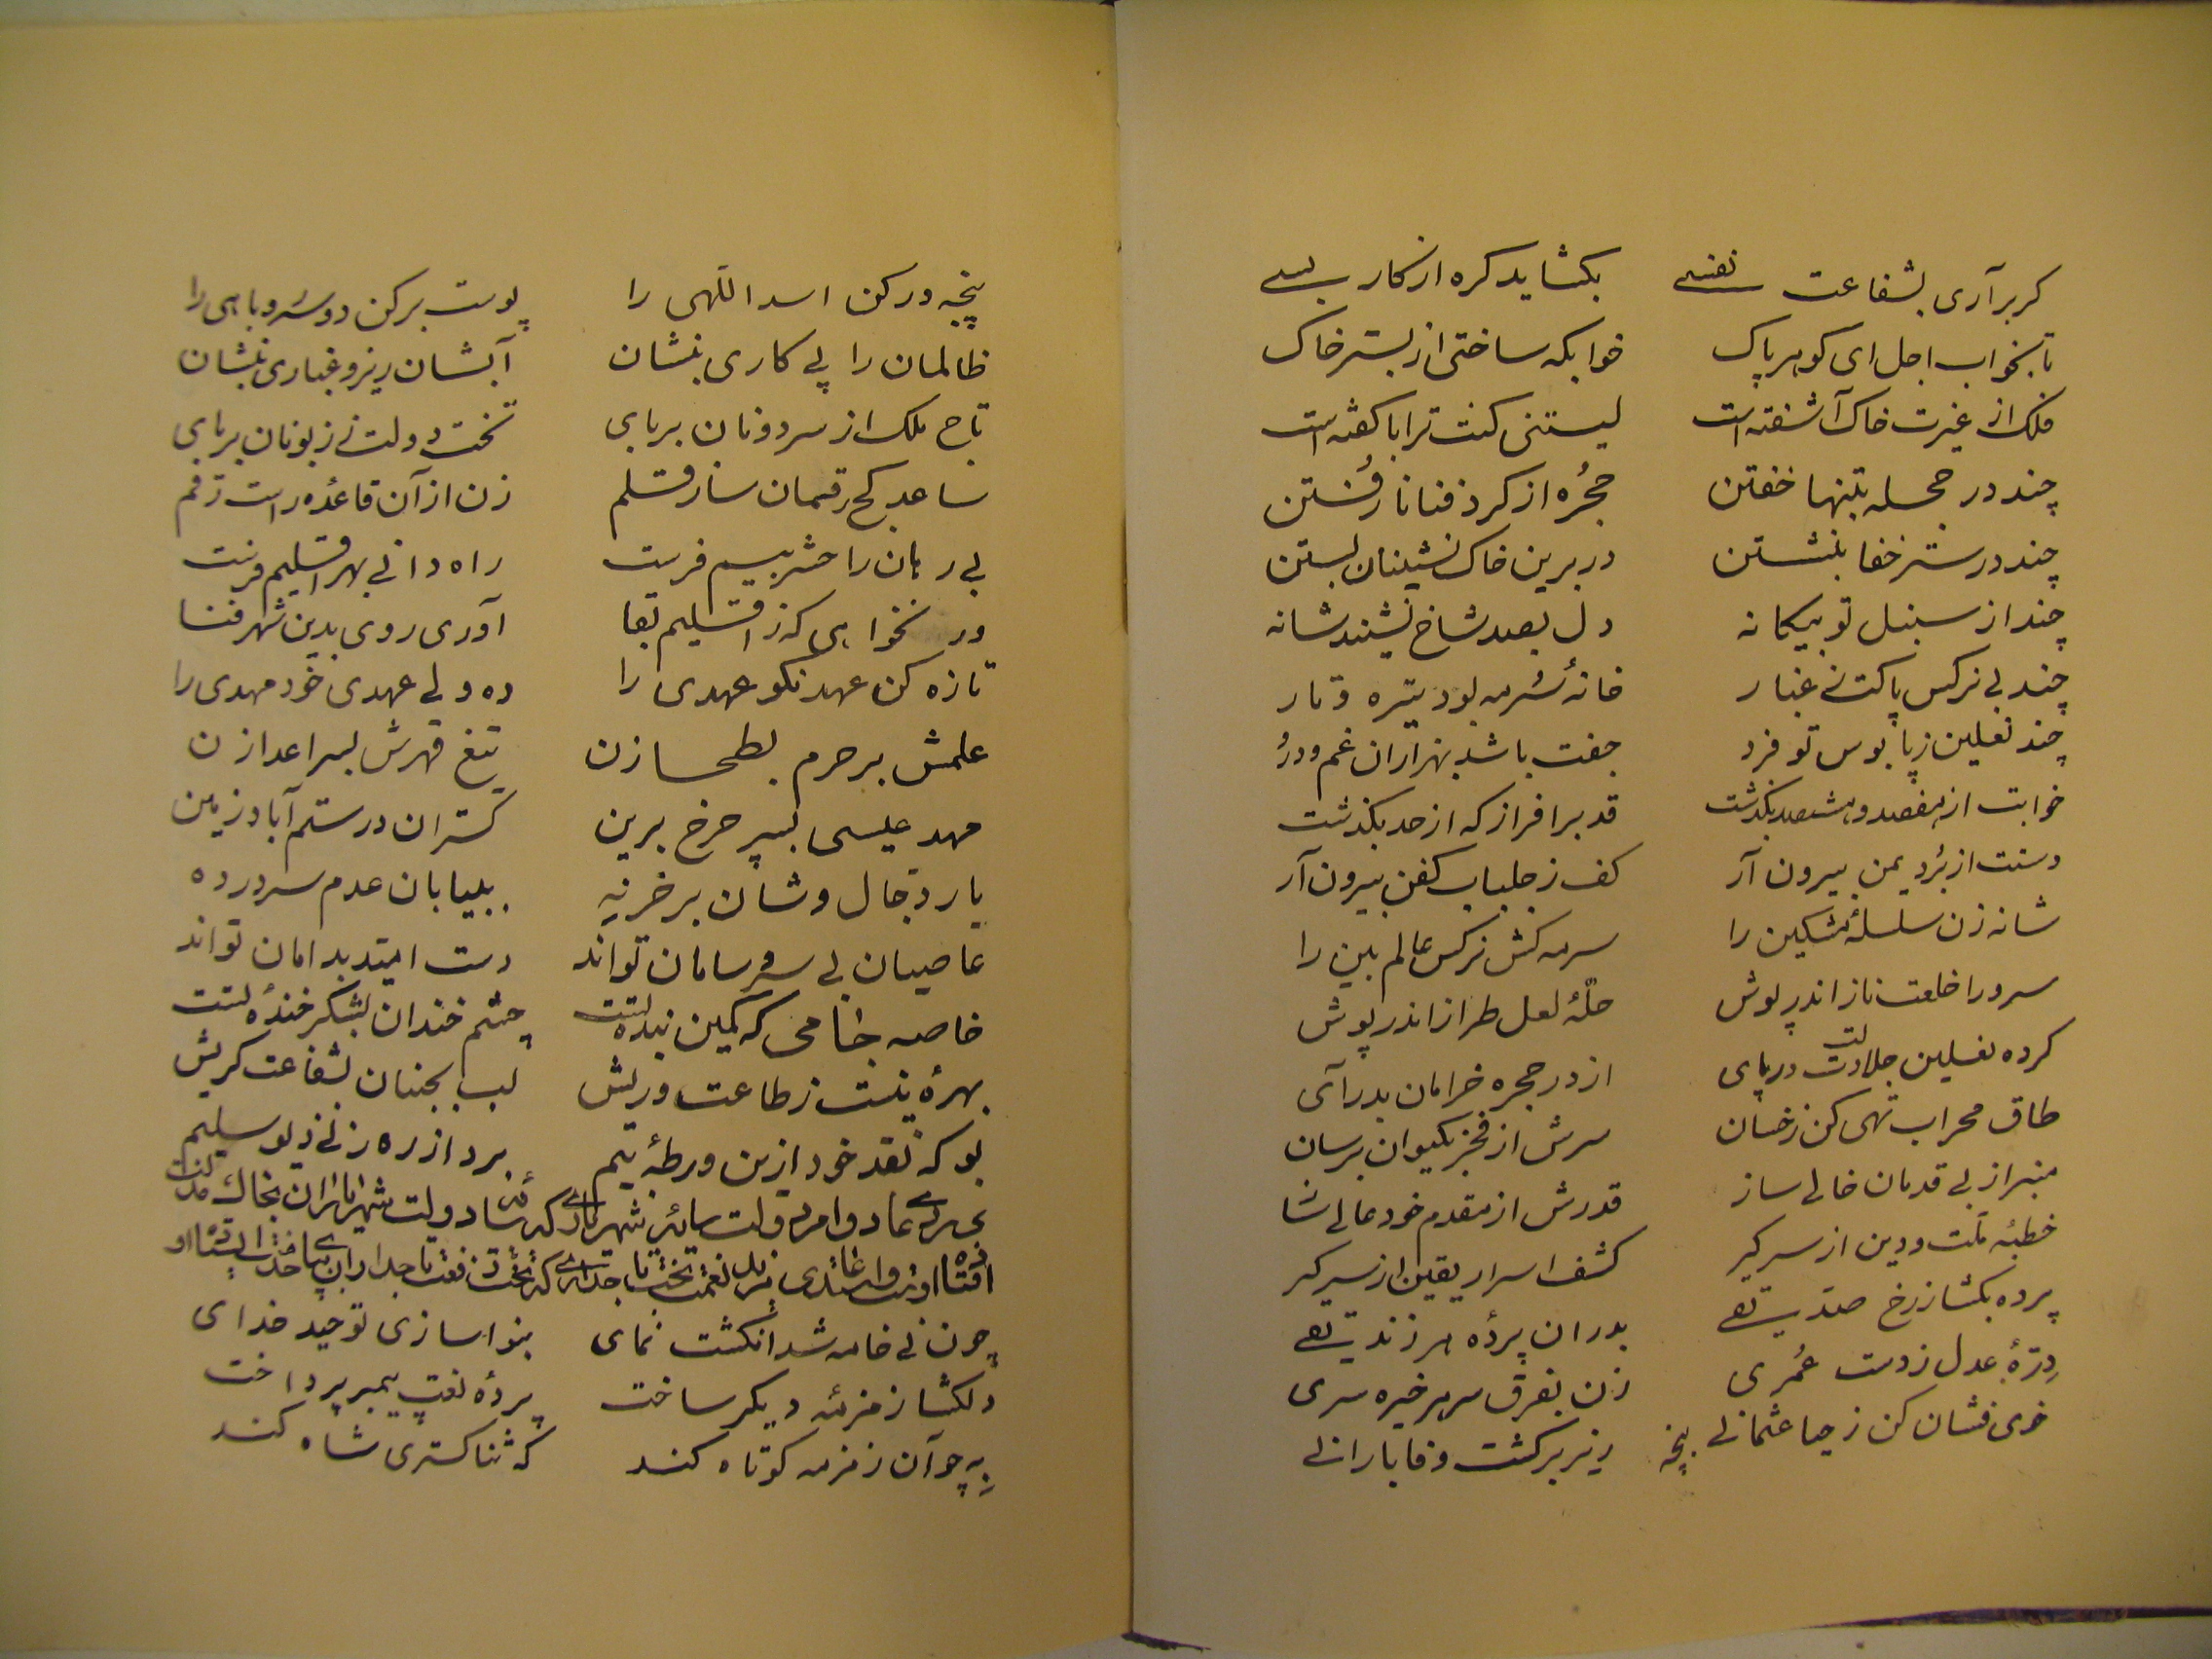 کر برآری بشفاعت نفسے بکشاید کره از کار بسے
تا بخواب اجل ای کوهر پاک خوابکه ساختی از بستر خاک
فلک از غیرت خاک آشفته است لیستنی کنت ترابا کفته است
چند در حجله بتنها خفتن حجره از کرد فنا نارفتن
چند در ستر خفا بنشستن در برین خاک نشینان بستن
چند از سنبل تو بیکانه دل بصد شاخ نشیند شانه
چند بی نرکس پاکت ز غبار خانهٔ سرمه بود تیره و تار
چند نعلین ز پابوس تو فرد جفت باشد بهزاران غم و درد
خوابت از هفصد و هشتصد بکذشت قد برافراز که از حد بکذشت
دستت از برد یمن بیرون آر کف ز جلباب کفن بیرون آر
شانه زن سلسلهٔ مشکین را سرمه کش نرکس عالم بین را
سرو را خلعت ناز اندر پوش حلّهٔ لعل طراز اندر پوش
کرده نعلین جلادت در پای از در حجره خرامان بدر آی
طاق محراب تهی کن ز خسان سرش از فخر بکیوان برسان
منبر از بی قدمان خالی ساز قدرش از مقدم خود عالی سا
خطبهٔ ملت و دین از سر کیر کشف اسرار یقین از سر کیر
پرده بکشا ز رخ صدیقے بدران پردهٔ هر زندیقے
درّهٔ عدل ز دست عُمری زن بفرق سر هر خیره سری
خوی فشان کن ز حیا عثمانی ریز بر کشت وفا بارانی
پنجه
پنجه در کن اسد اللّهی را پوست بر کن دو سه روباهی را
ظالمان را پی کاری بنشان آبشان ریز و غباری بنشان
تاج ملک از سر دونان بربای تخت دولت ز زبونان بربای
ساعد کج رقمان ساز قلم زن از آن قاعدهٔ راست رقم
بی رهان را حشر بیم فرست راه دانی بهر اقلیم فرست
ور نخواهی که ز اقلیم بقا آوری روی بدین شهر فنا
تازه کن عهد نکو عهدی را ده ولی عهدی خود مهدی را
علمش بر حرم بطحا زن تیغ قهرش بسر اعدا زن
مهد عیسی بسپر چرخ برین کستران در ستم آباد زمین
بار دجال وشان بر خر نه ببیابان عدم سر در ده
عاصیان بی سر و سامان تواند دست امید بدامان تواند
خاصه جامی که کمین بندهٔ تست چشم خندان بشکر خندهٔ تست
بهرهٔ نیست ز طاعت وریش لب بجنبان بشفاعت کریش
بو که نقد خود ازین ورطهٔ بیم برد از ره زنی دیو سلیم
چون نی خامه شد انکشت نمای بنوا سازی توحید خدای
دلکشا زمزمهٔ دیکر ساخت پردهٔ نعت پیمبر پرداخت
به چو آن زمزمه کوتاه کند که ثنا کستری شاه کند